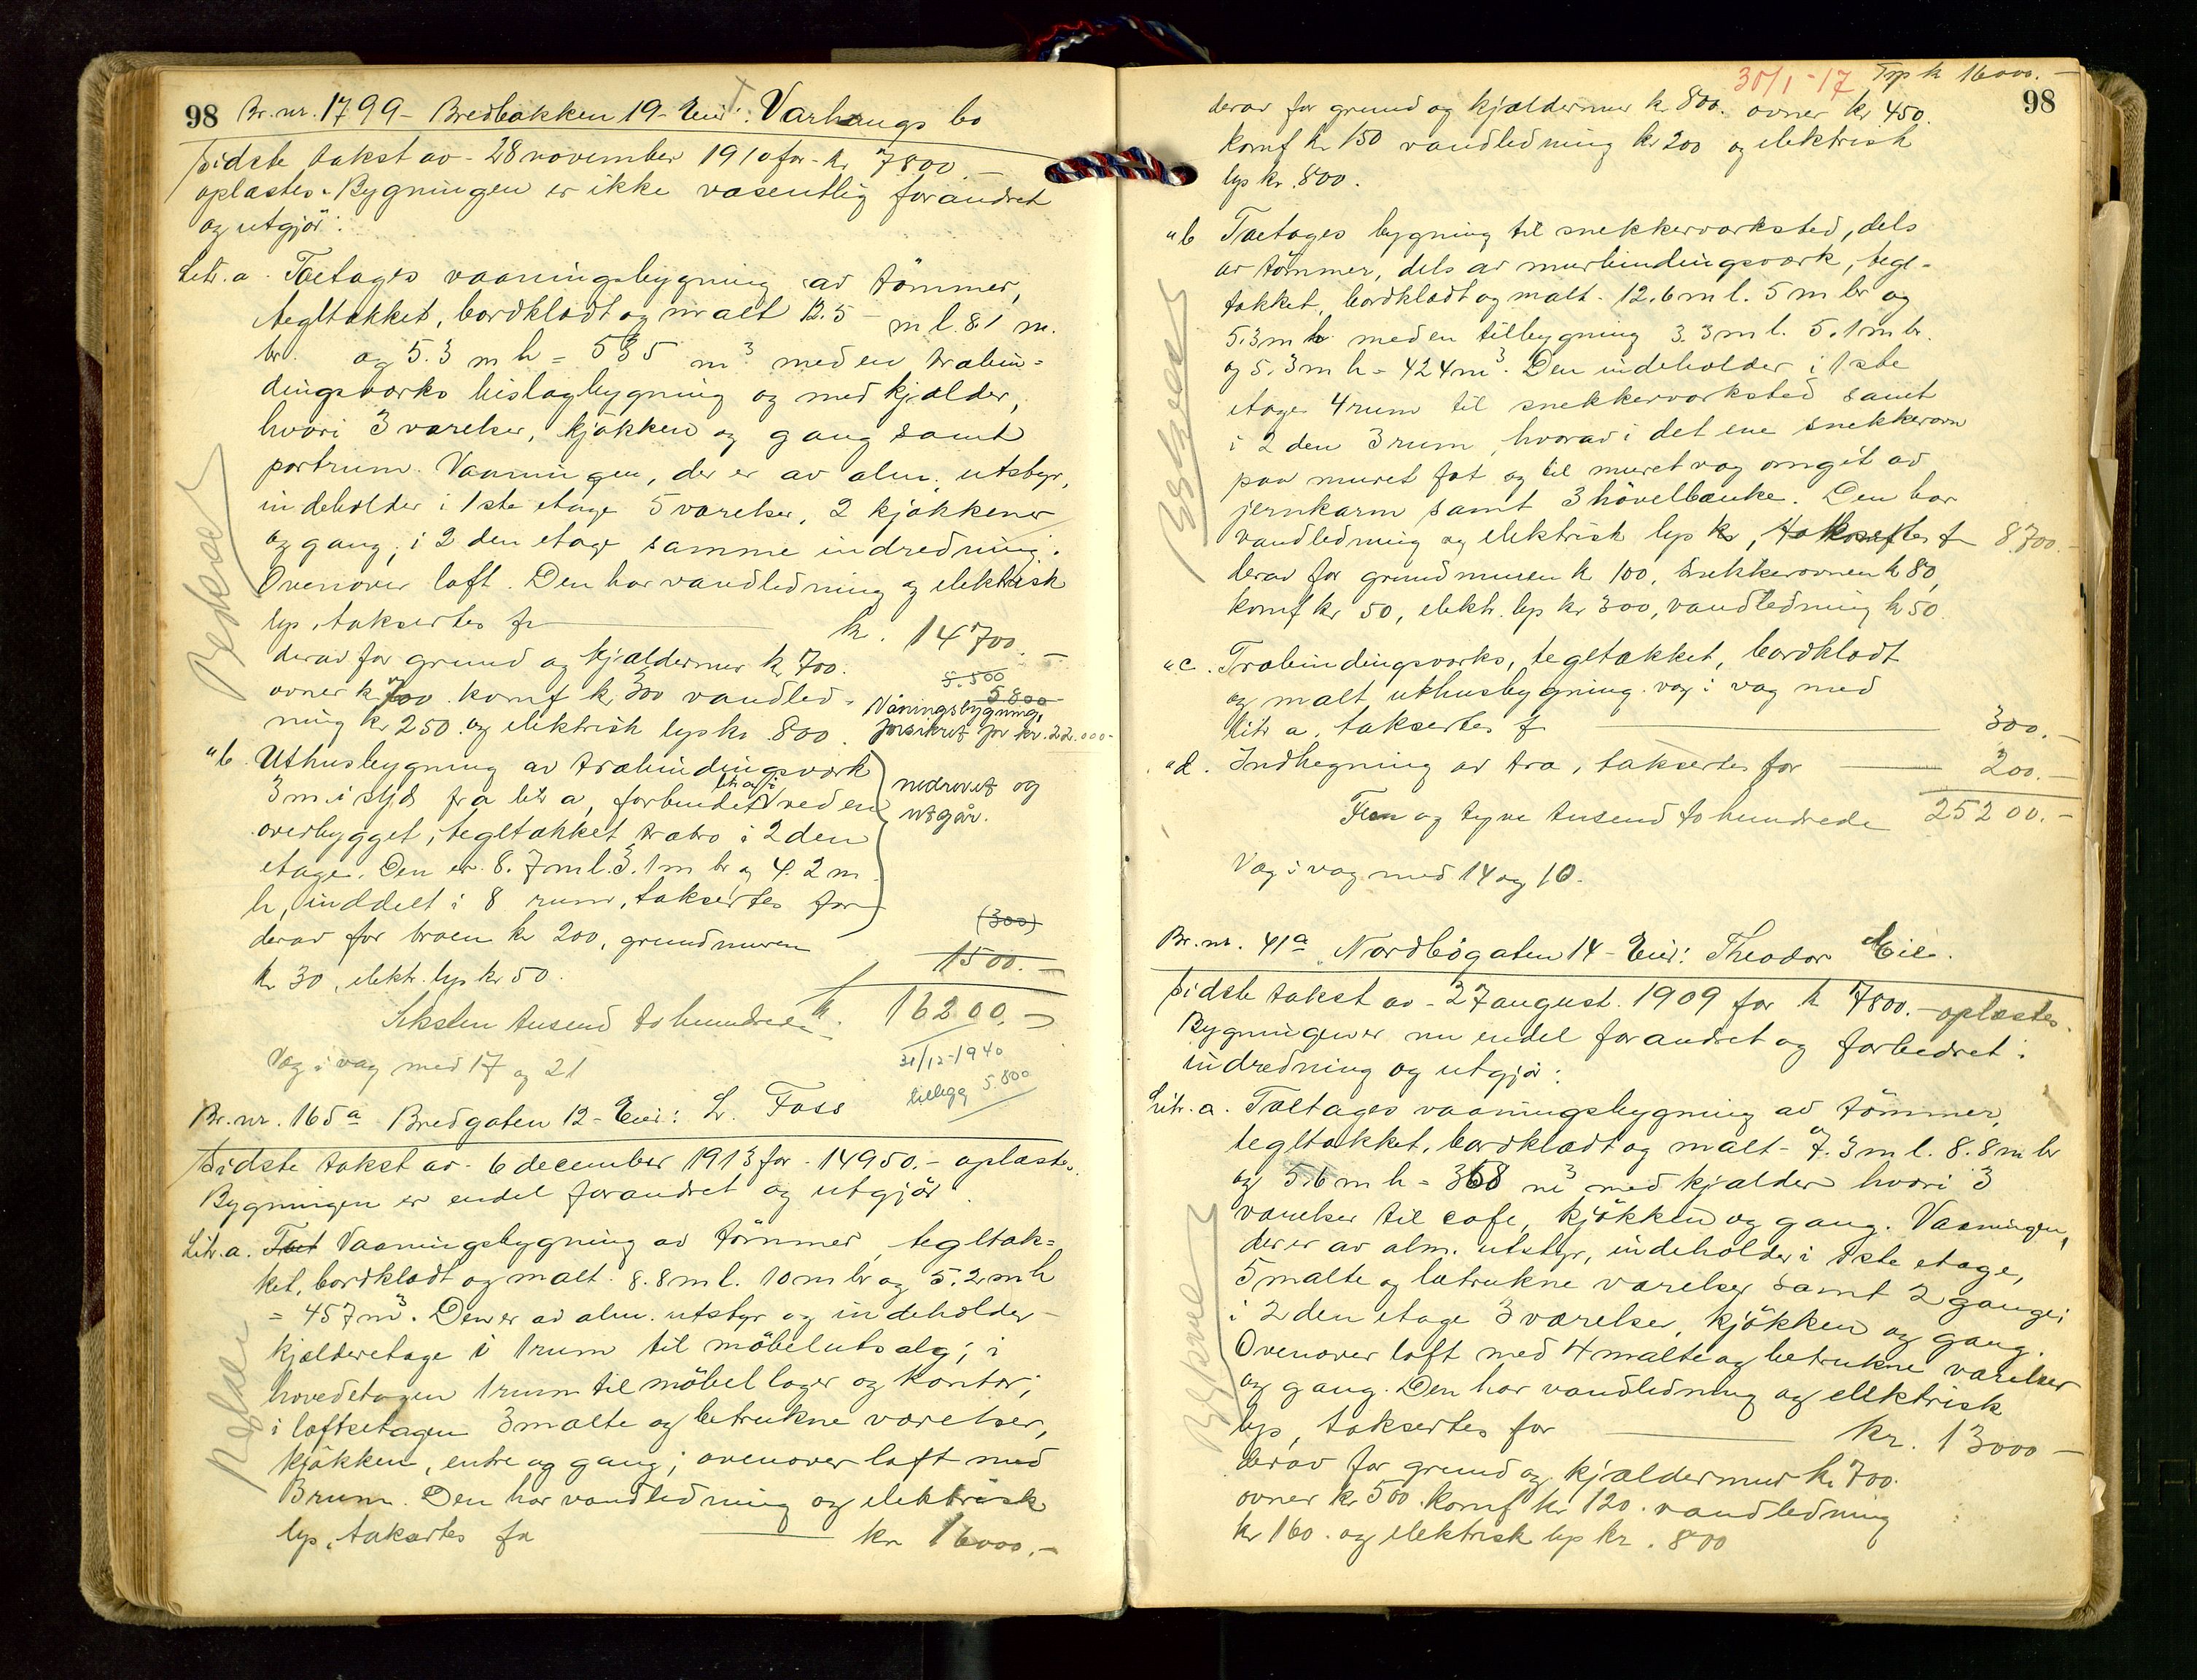 98 Br. nr. 1799 - Bredbakken 19 - Eier: Varhaugs bo
Sidste takst av - 28 november 1910 for - kr 7800.-
oplæstes. Bygningen er ikke væsentlig forandret
og utgjör:
Litr. a. Toetages vaaningsbygning av tömmer,
tegltækket, bordklædt og malt 12.5 - m l. 8.1 m.
br. og 5.3 m h = 535 m³ med en træbin=
dingsverks bislagbygning og med kjælder,
hvori 3 værelser, kjökken og gang samt
portrum. Vaaningen, der er av alm. utstyr,
indeholder i 1ste etage 5 værelser, 2 kjökkener
og gang, i 2 den etage samme indredning.
Ovenover loft. Den har vandledning og elektrisk
lys, taksertes for kr. 14700.-
derav for grund og kjældermur kr 700.
ovner kr 700 komf kr. 300 vandled=
ning kr 250 og elektrisk lys kr 800.
8.500
5800
Våningsbygning,
forsikret for kr. 22.000-
"b. Uthusbygning av træbindingsverk
3 m i syd fra litr a, forbundet litr a ved en
overbygget, tegltækket træbro i 2 den
etage. Den er 8.7 m l. 3.1 m br og 4.2 m
h, inddelt i 8 rum, taksertes for
nedrevet og
utgår.
derav for broen kr 200, grundmuren
kr 30, elekt. lys kr 50.
(300)
1500.-
Seksten tusend to hundrede kr. 16200.-
Væg i væg med 17 og 21
31/12-1940
tillegg 5.800
Br. nr. 165a Bredgaten 12 - Eier: L. Foss
Sidste takst av - 6 december 1913 for - 14950.- oplæstes.
Bygningen er endel forandret og utgjör.
Litr. a. Toet Vaaningsbygning av tömmer, tegltæk=
ket, bordklædt og malt. 8.8 m l. 10 m br og 5.2 m h
= 457 m³. Den er av alm. utstyr og indeholder
kjælderetage i 1 rum til möbelutsalg; i
hovedetagen 1 rum til möbellager og kontor;
i loftsetagen 3 malte og betrukne værelser,
kjökken, entre og gang; ovenover loft med
3 rum. Den har vandledning og elektrisk
lys, taksertes for kr 16000.-
Befaret
Befaret
30/1-17 Trp kr 16000.-
98
derav for grund og kjældermur kr 800. ovner kr 450.
komf kr 150 vandledning kr 200 og elektrisk
lys kr. 800.
"b Toetages bygning til snekkerverksted, dels
av tömmer, dels av murbindingsverk, tegl-
tækket, bordklædt og malt - 12.6 m l. 5 m br og
5.3 m h med en tilbygning 3.3 m l. 5.1 m br.
og 5.3 m h = 424 m³. Den indeholder i 1ste
etage 4 rum til snekkerverksted samt
i 2 den 3 rum, hvorav i det ene snekkerovn
paa muret fot og til muret væg omgit av
jernkarm samt 3 hövelbænke. Den har
vandledning og elektrisk lys kr, taksertes for 8700.-
derav for grundmuren kr 100, snekkerovnen kr 80,
komf kr 50, elekt. lys kr 300, vandledning kr 50.
"c. Træbindingsverks, tegltækket, bordklædt
og malt uthusbygning. væg i væg med
litr a, taksertes for 300.-
"d. Indhegning av træ, taksertes for 200.-
Fem og tyve tusend to hundrede 25200.-
Væg i væg med 14 og 10.
Br. nr. 41a Nordbögaten 14 - Eier: Theodor Eie.
Sidste takst av - 27 august 1909 for kr 7800.- oplæstes.
Bygningen er nu endel forandret og forbedret i
indredning og utgjör:
Litr. a. Toetages vaaningsbygning av tömmer,
tegltækket, bordklædt og malt - 7.3 m l. 8.8 m br
og 5.6 m h = 368 m³ med kjælder hvori 3
værelser til cafe, kjökken og gang. Vaaningen,
der er av alm. utstyr, indeholder i 1ste etage,
5 malte og betrukne værelser samt 2 gange;
i 2 den etage 3 værelser, kjökken og gang.
Ovenover loft med 4 malte og betrukne værelser
og gang. Den har vandledning og elektrisk
lys, taksertes for kr. 13000-
derav for grund og kjældermur kr 700.
ovner kr 500 komf kr 120. vandledning
kr 160. og elektrisk lys kr. 800
Befaret
Befaret